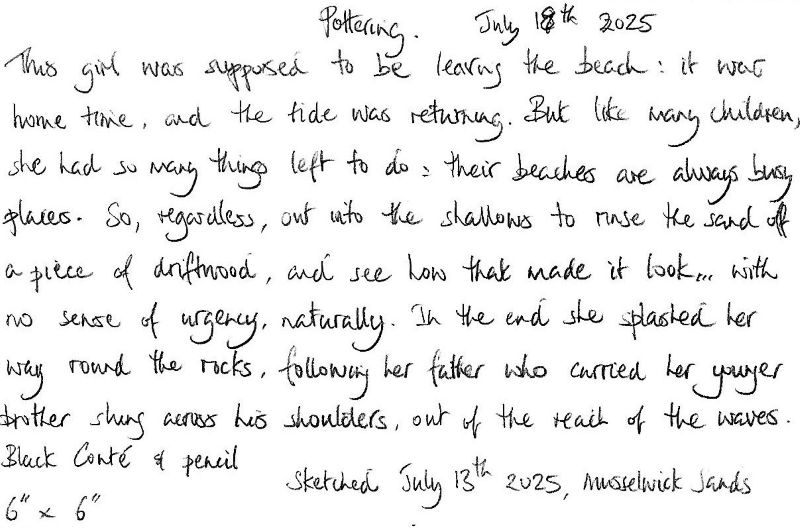 Pottering. July 18th 2025
This girl was supposed to be leaving the beach: it was
home time, and the tide was returning. But like many children,
she had so many things left to do: their beaches are always busy
places. So, regardless, out into the shallows to rinse the sand off
a piece of driftwood, and see how that made it look... with
no sense of urgency, naturally. In the end she splashed her
way round the rocks, following her father who carried her younger
brother slung across his shoulders, out of the reach of the waves.
Black Conté & pencil
Sketched July 13th 2025, Musselwick Sands
6" x 6"